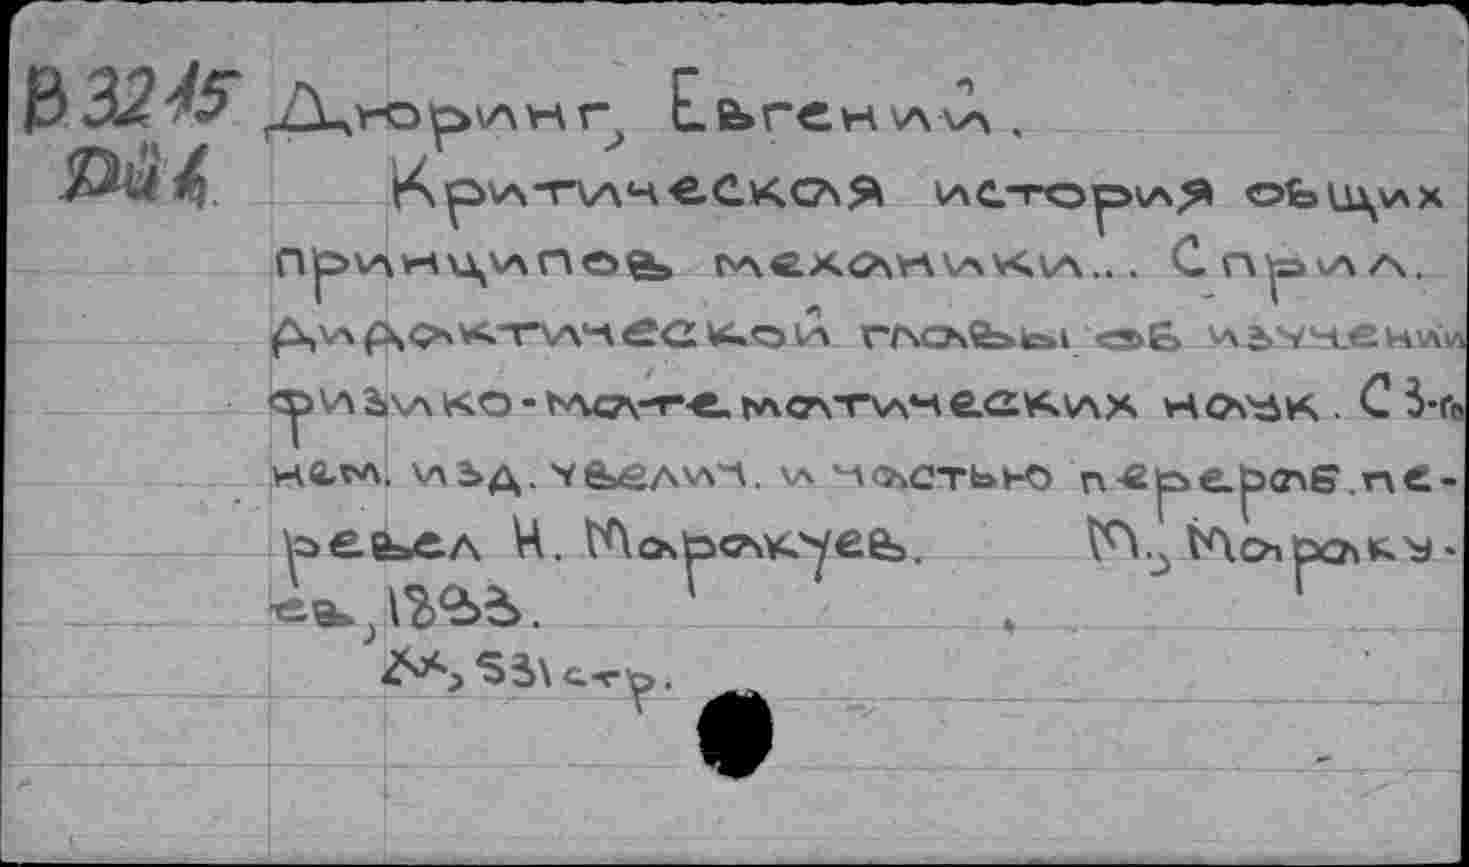 В3245 Дюринг, Евгений.
Дй4 Критическая история общих
принципов механики... С прил.
дидактической главы об изучении
физико-математических наук. С 3-го
нем. изд. увелич. и частью перераб. пе-
ревел Н. Маракуев. М., Мараку-
ев, 1893.
XX, 531 стр.